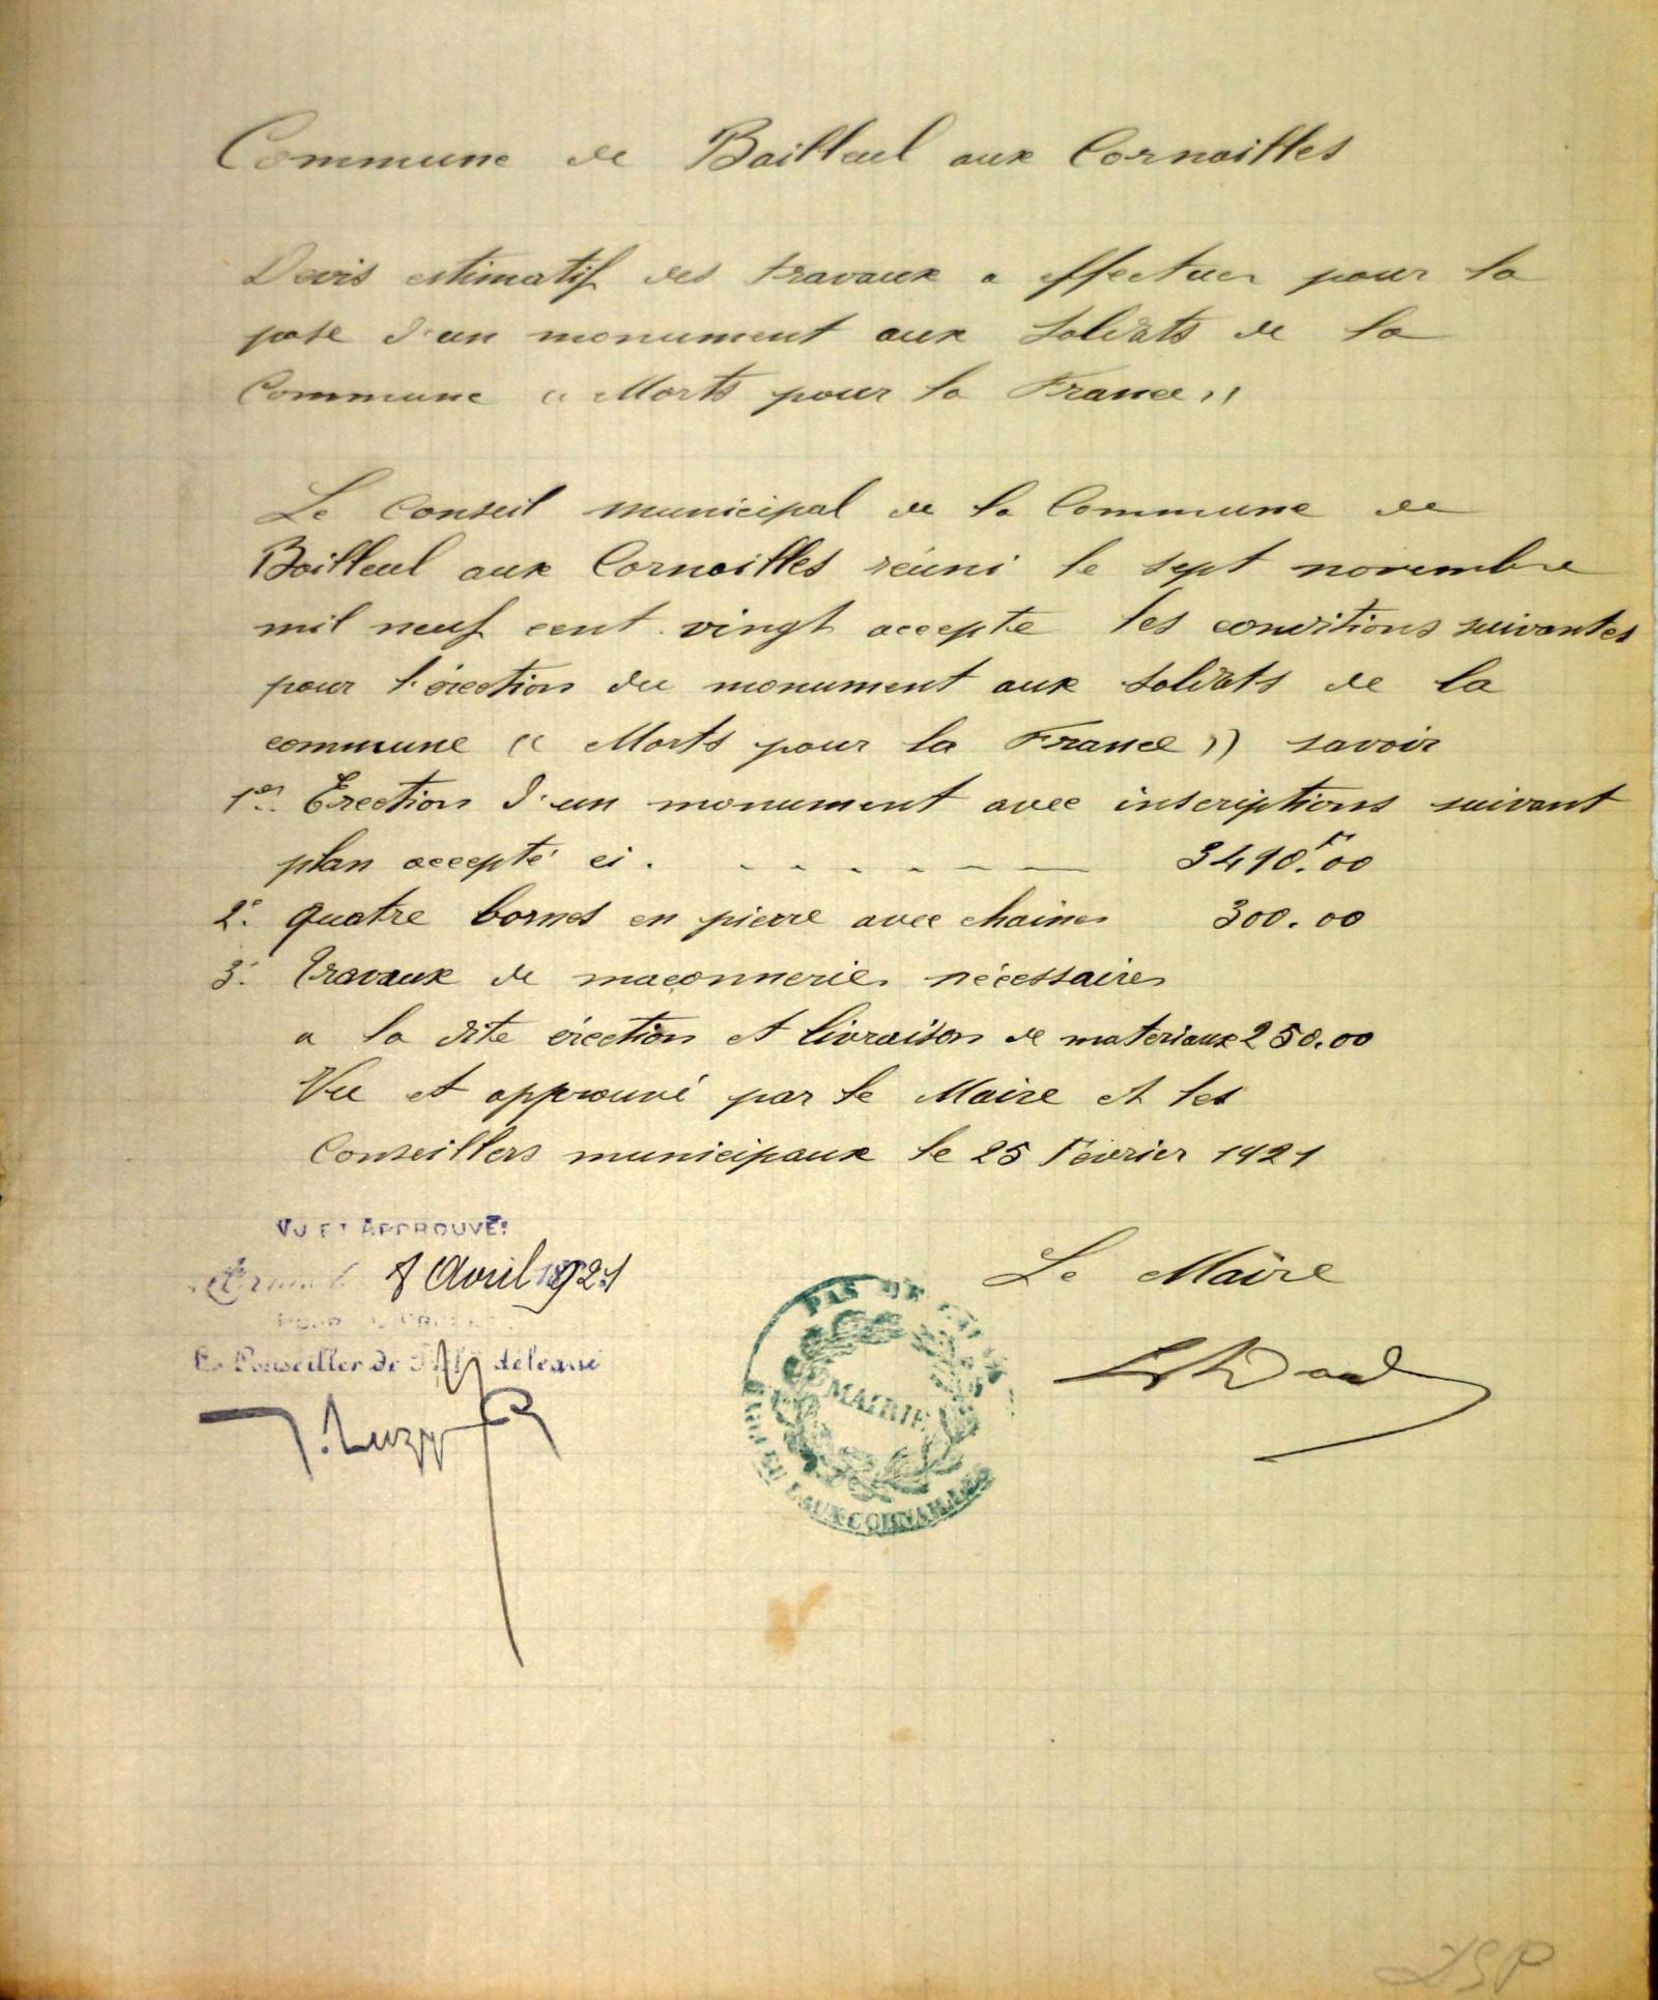 Commune de Bailleul aux Cornailles
Devis estimatif des travaux a effectuer pour la
pose d'un monument aux Soldats de la
Commune « Morts pour la France »
Le Conseil municipal de la Commune de
Bailleul aux Cornailles réuni le sept novembre
mil neuf cent vingt accepte les conditions suivantes
pour l'érection du monument aux Soldats de la
commune « Morts pour la France » savoir
1er Erection d'un monument avec inscriptions suivant
plan accepté ci . - - - - - - 3490.F00
2° quatre bornes en pierre avec chaines 300.00
3° Travaux de maçonneries nécessaires
a la dite érection et livraison de materiaux 250.00
Vu et approuvé par le Maire et les
Conseillers municipaux le 25 Février 1921
VU ET APPROUVÉ:
8 Avril 1921
Le Conseiller de délégué
Le Maire
PAS DE CALAIS
MAIRIE
BAILLEUL AUX CORNAILLES
DSP